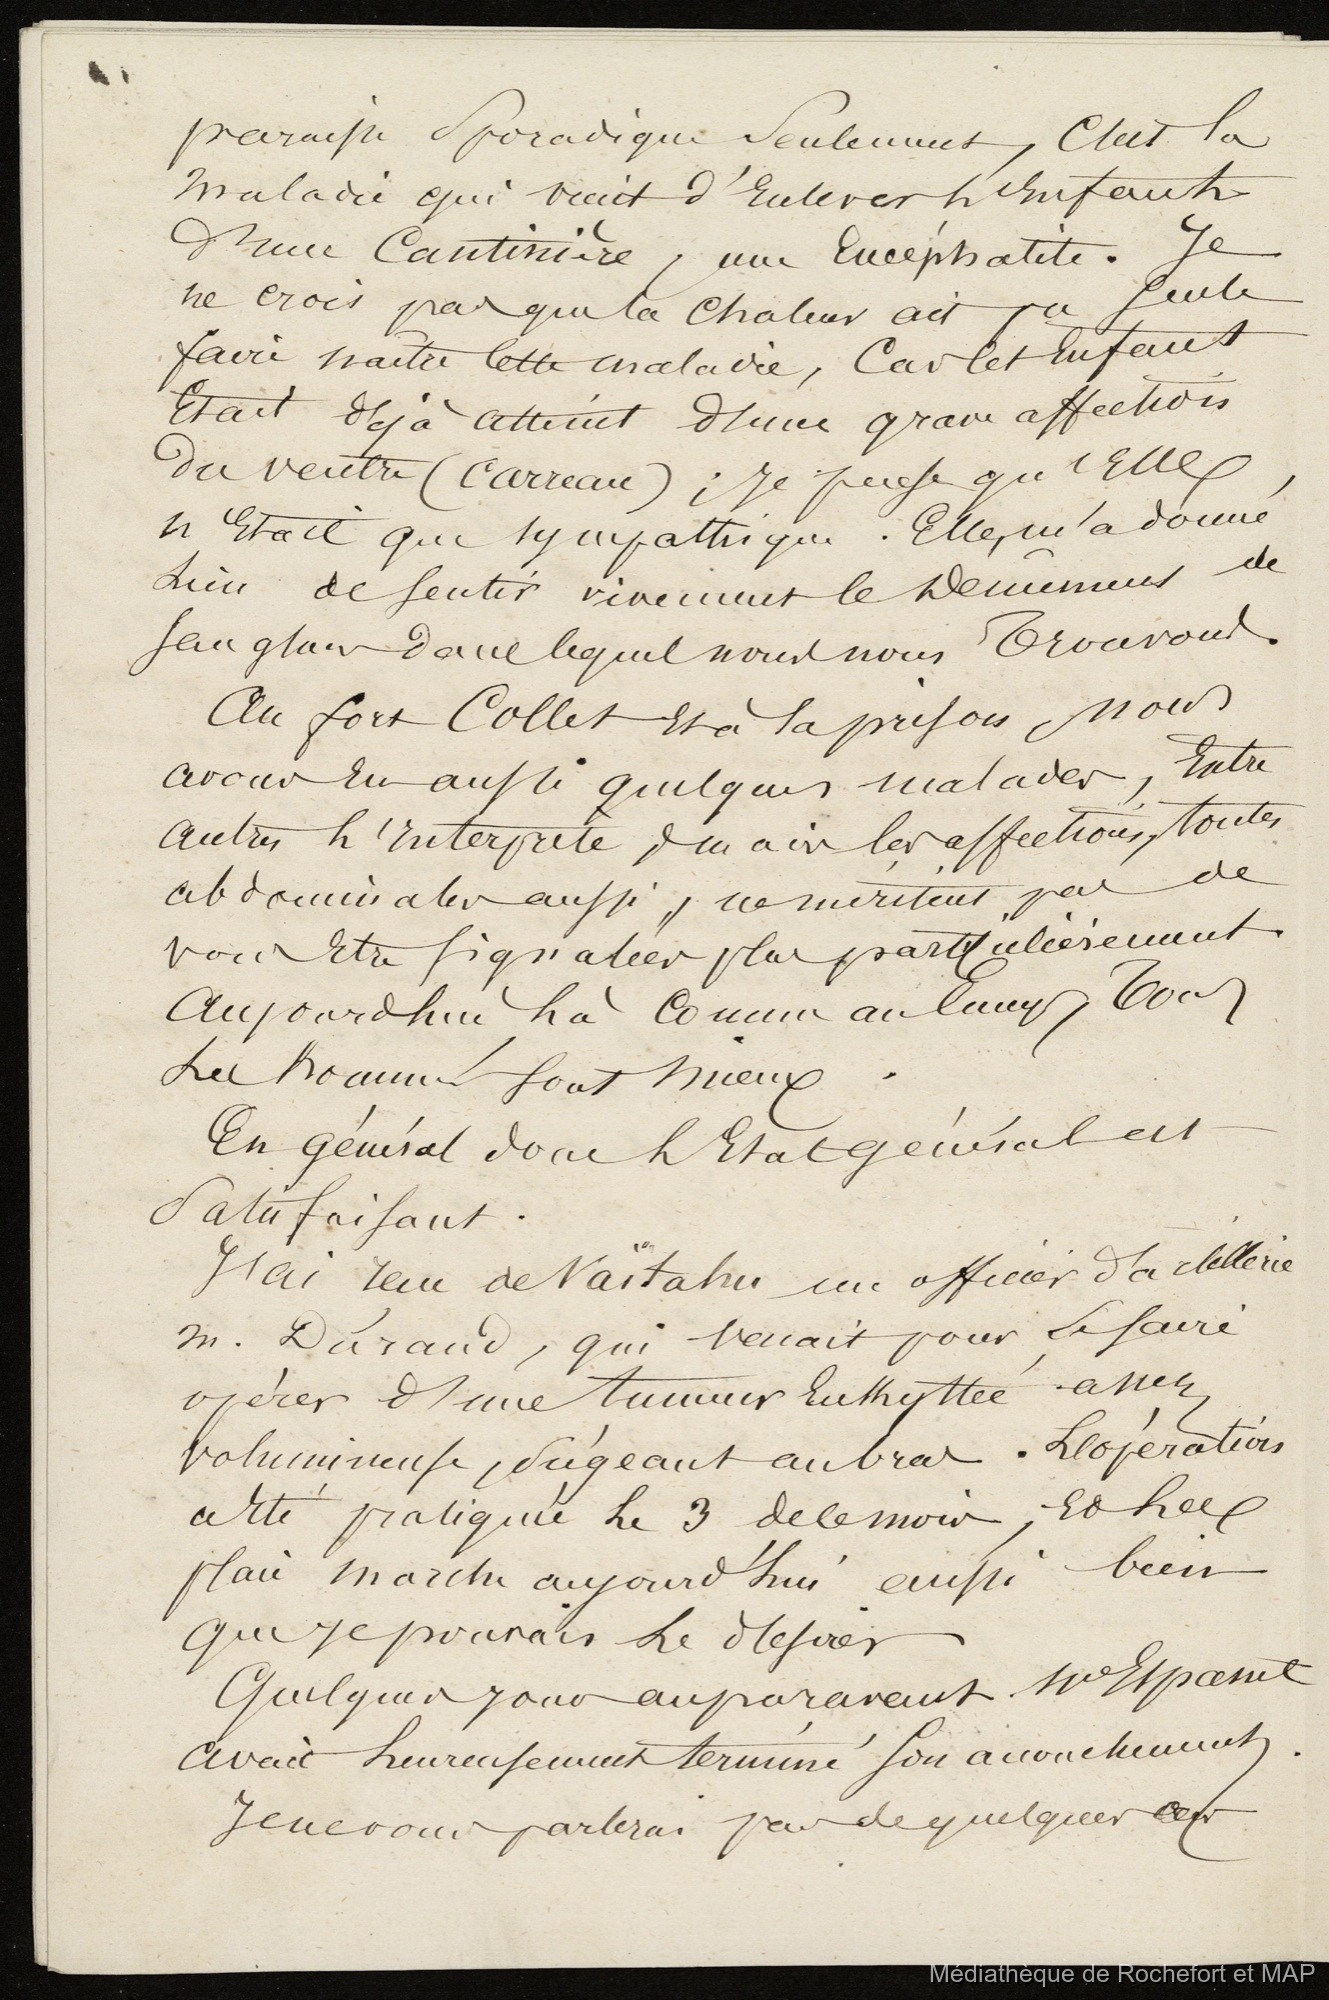 paraisse sporadique seulement, C'est la
maladie qui vient d'Enlever l'Enfant
d'une Cantinière, une Encéphalite. Je
ne crois pas que la chaleur ait pu seule
faire naître cette maladie, Car cet Enfant
Etait déjà atteint d'une grave affection
du ventre (Carreau) ; Je pense qu'Elle
n'Etait que sympathique. Elle m'a donné
lieu de sentir vivement le dénûment de
sangsues dans lequel nous nous Trouvons.
Au fort Collet Et à la prison, nous
avons Eu aussi quelques malades, Entre
autres l'Interprète, mais les affections, toutes
abdominales aussi, ne méritent pas de
vous Etre signalées plus particulièrement.
Aujourdhui là comme au Camp, Tous
les hommes sont mieux.
En général donc l'Etat général est
Satisfaisant.
J'ai reçu de Vaïtahu un officier d'artillerie
m. Durand, qui venait pour se faire
opérer d'une tumeur Enkystée assez
volumineuse, siégeant au bras. L'opération
a Eté pratiquée le 3 de ce mois, Et la
plaie marche aujourd'hui aussi bien
que je pouvais le désirer
Quelques jours auparavant Me Espanet
avait heureusement terminé son accouchement.
Je ne vous parlerai pas de quelques cas